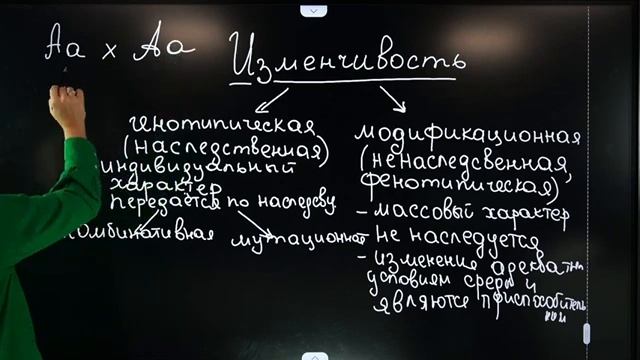 Аа х Аа
Изменчивость
генотипическая
(наследственная)
индивидуальный
характер
передаётся по наследву
комбинативная мутационная
модификационная
(ненаследсвенная,
фенотипическая)
- массовый характер
- не наследуется
- изменение адекватны
условиям среды и
являются приспособитель
ными